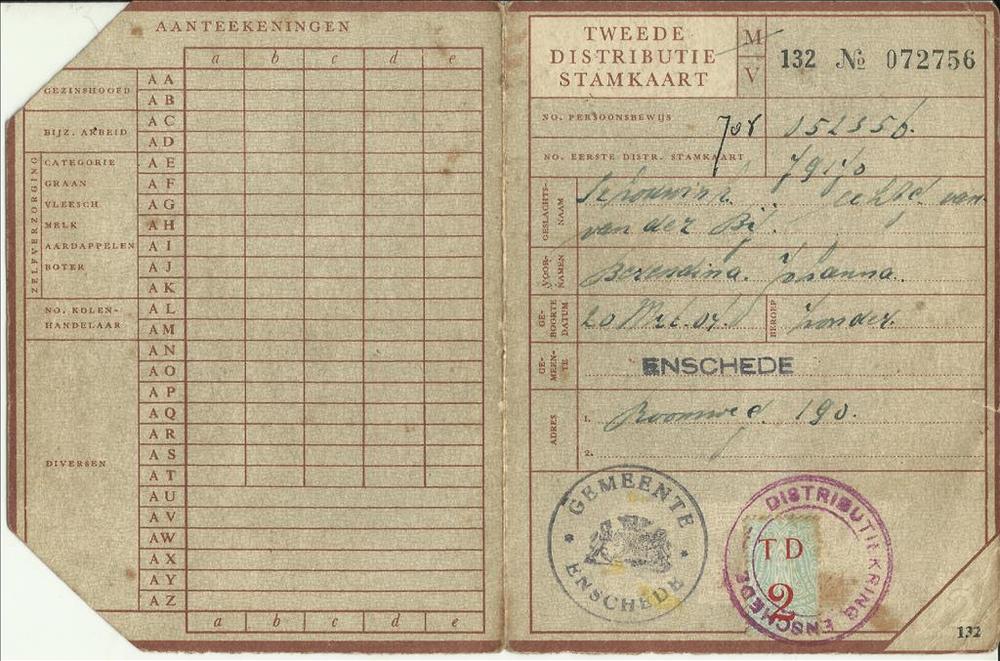 AANTEEKENINGEN
a b c d e
GEZINSHOOFD
A A
A B
BIJZ. ARBEID
A C
A D
ZELFVERZORGING
CATEGORIE A E
GRAAN A F
VLEESCH A G
MELK A H
AARDAPPELEN A I
BOTER A J
A K
NO. KOLEN-
HANDELAAR
A L
A M
DIVERSEN
A N
A O
A P
A Q
A R
A S
A T
A U
A V
A W
A X
A Y
A Z
a b c d e
TWEEDE
DISTRIBUTIE
STAMKAART
M
V
132 № 072756
NO. PERSOONSBEWIJS
NO. EERSTE DISTR. STAMKAART
GESLACHTS-
NAAM
van der Bij.
VOOR-
NAMEN
Berendina. Johanna.
GE-
BOORTE
DATUM
20
BEROEP
zonder.
GE-
MEEN-
TE
ENSCHEDE
ADRES
1. Roomweg. 190.
2.
GEMEENTE
ENSCHEDE
DISTRIBUTIEKRING ENSCHEDE
TD
2
132